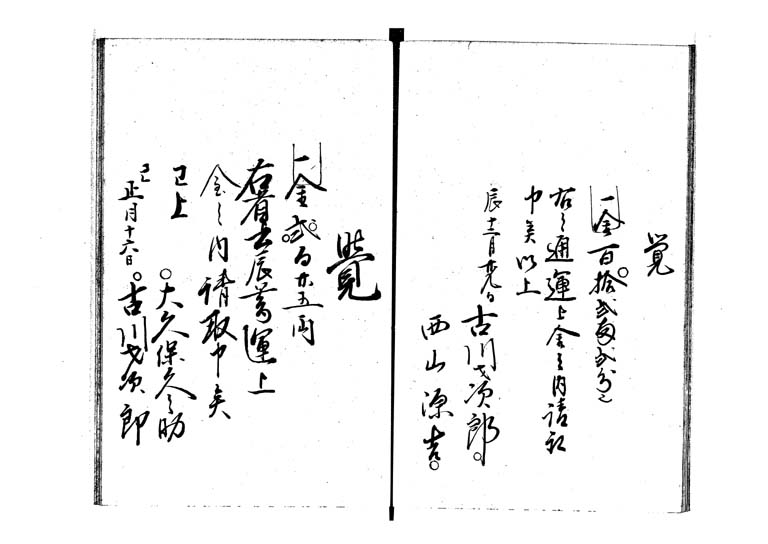 覚
一金百拾弐両弐分也
右之通運上金之内請取
申矣以上
辰十二月廿九日 古川武次郎
西山源吉
覺
一金弐百廿五両
右者去辰暮運上
金之内請取申矣
已上 大久保久之助
巳正月十六日 古川武次郎